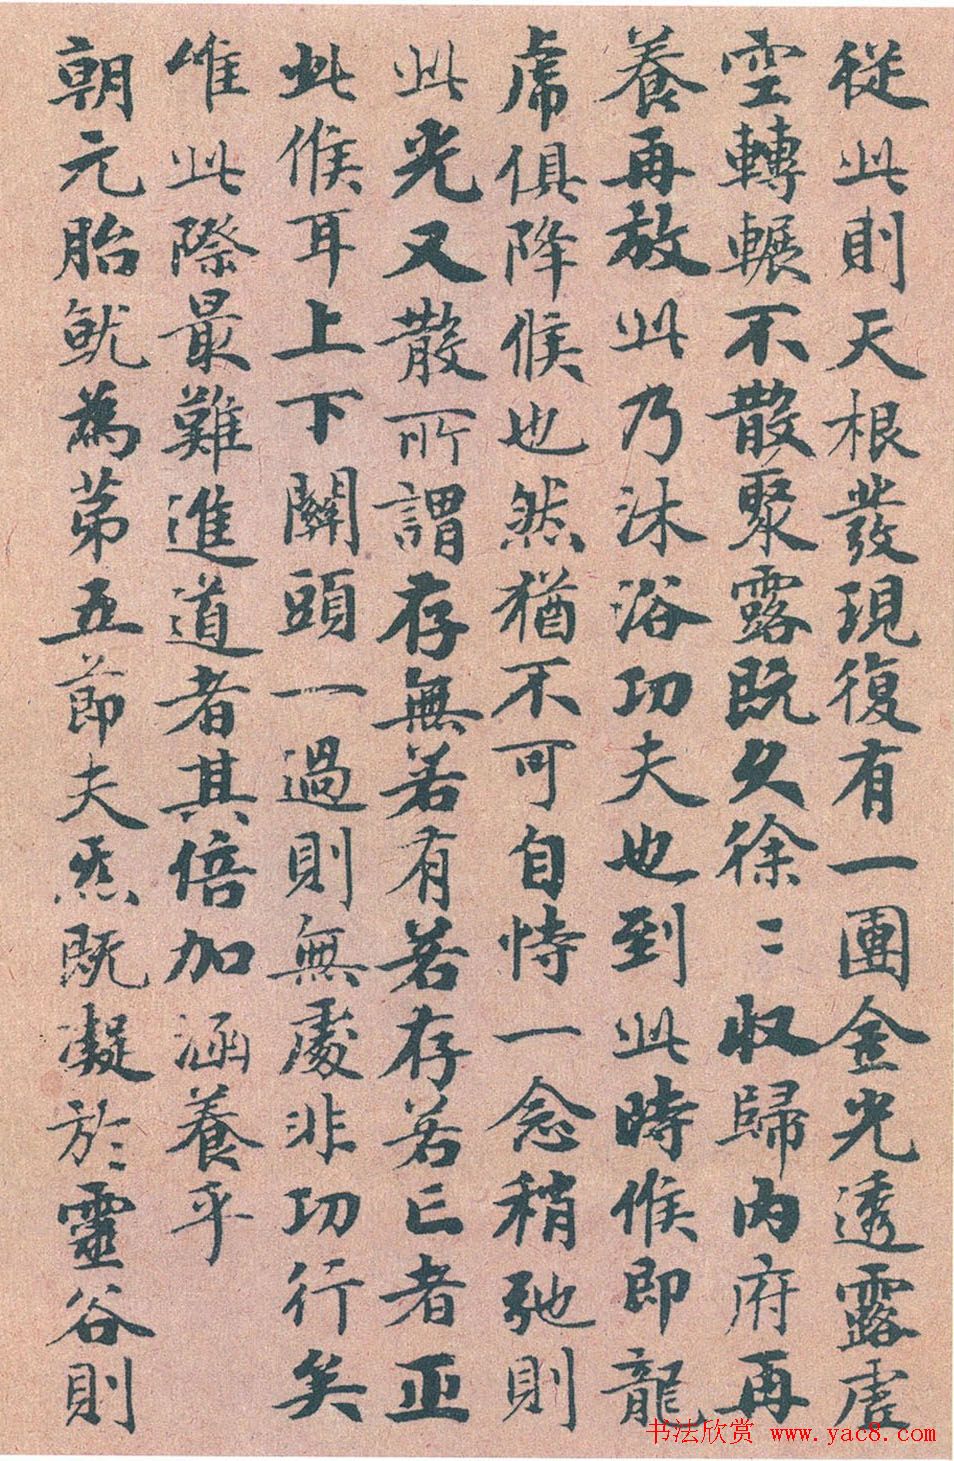 從此則天根發現復有一團金光透露虛
空轉輾不散聚露既久徐〻收歸內府再
養再放此乃沐浴功夫也到此時候即龍
虎俱降候也然猶不可自恃一念稍弛則
此光又散所謂存無若有若存若亡者正
此候耳上下關頭一過則無處非功行矣
惟此際最難進道者其倍加涵養乎
朝元胎就為第五節夫炁既凝於靈谷則
书法欣赏 www.yac8.com